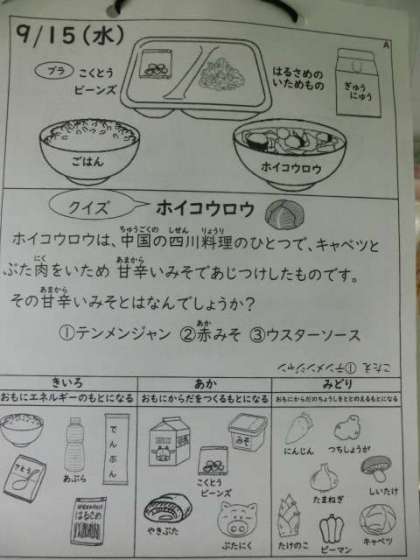 9/15(水)
A
プラ
こくとう
ビーンズ
はるさめの
いためもの
ぎゅう
にゅう
ごはん
ホイコウロウ
クイズ
ホイコウロウ
ホイコウロウは、中国の四川料理のひとつで、キャベツと
ちゅうごくの しせん りょうり
ぶた肉をいため 甘辛いみそであじつけしたものです。
にく あまから
その甘辛いみそとはなんでしょうか？
あまから
①テンメンジャン ②赤みそ ③ウスターソース
あか
こたえ①テンメンジャン
きいろ
おもにエネルギーのもとになる
あか
おもにからだをつくるもとになる
みどり
おもにからだのちょうしをととのえるもとになる
あぶら
でんぷん
さとう
はるさめ
みそ
こくとう
ビーンズ
やきぶた
ぶたにく
にんじん
つちしょうが
たまねぎ
しいたけ
たけのこ
ピーマン
キャベツ